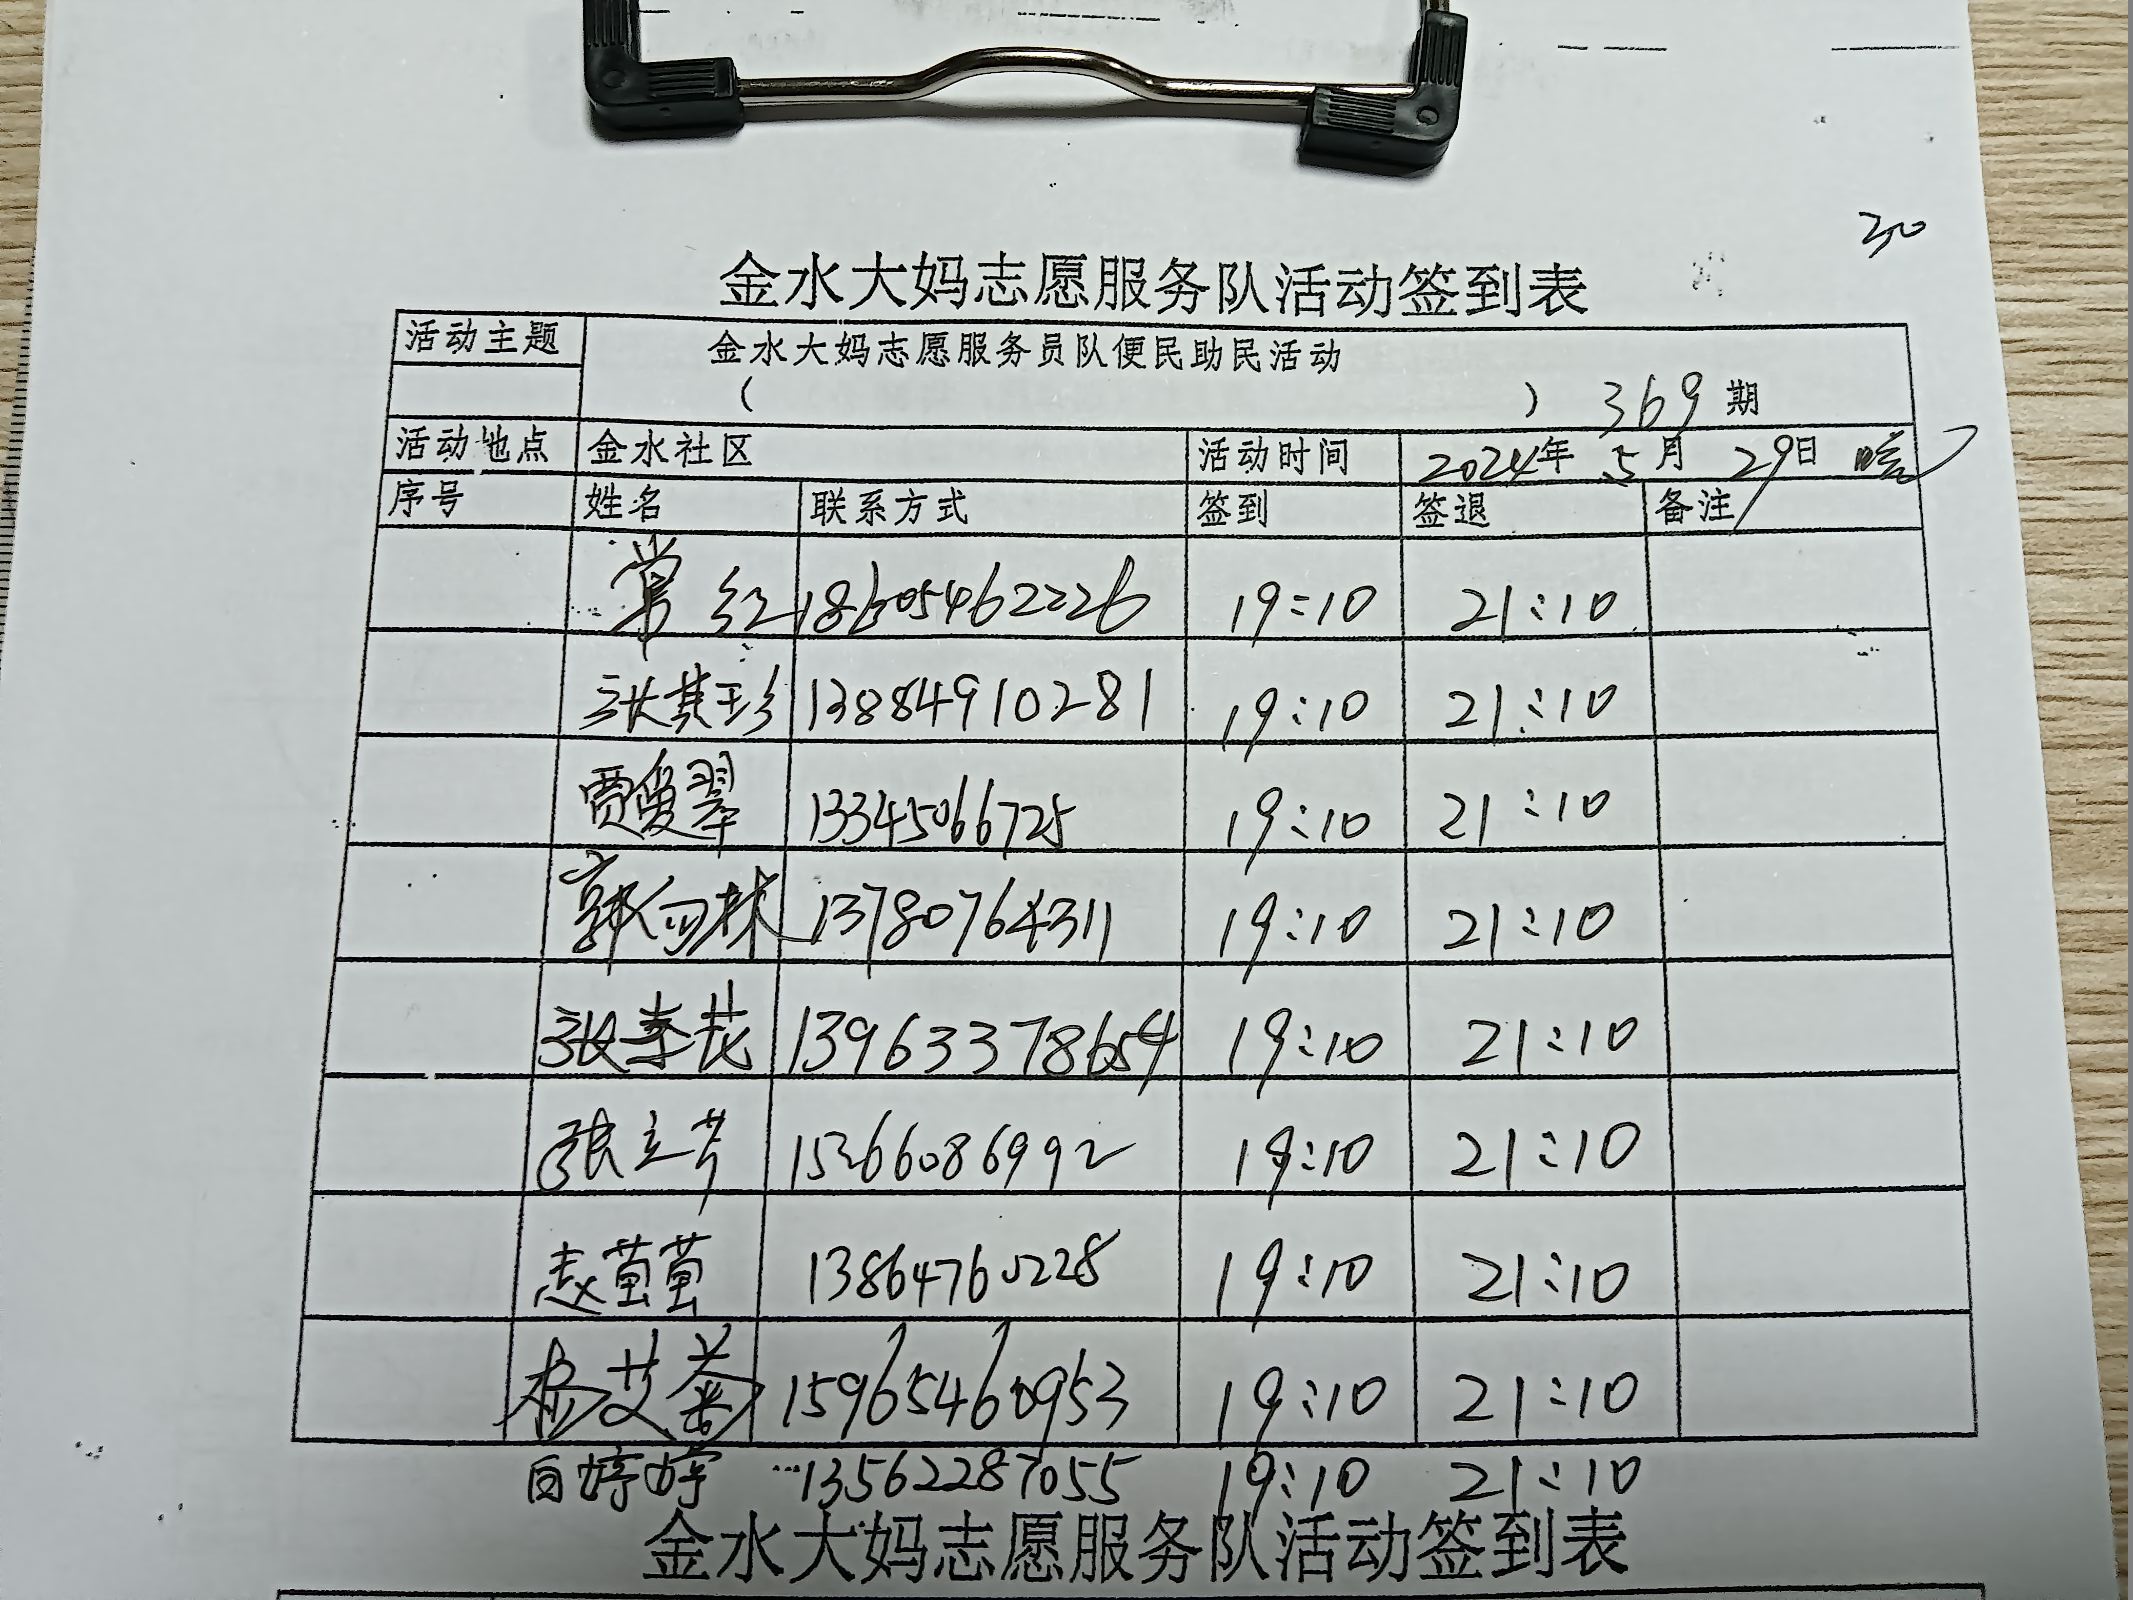 30
金水大妈志愿服务队活动签到表
活动主题 金水大妈志愿服务员队便民助民活动
( ) 369期
活动地点 金水社区 活动时间 2024年5月29日 晚
序号 姓名 联系方式 签到 签退 备注
常红 18605462226 19:10 21:10
张其珍 13884910281 19:10 21:10
贾爱翠 13345066725 19:10 21:10
郭向林 13780764311 19:10 21:10
张季花 13963378654 19:10 21:10
张立芹 15266086992 19:10 21:10
赵萤萤 13864760228 19:10 21:10
杨艾 15965460953 19:10 21:10
白婷婷 13562287055 19:10 21:10
金水大妈志愿服务队活动签到表